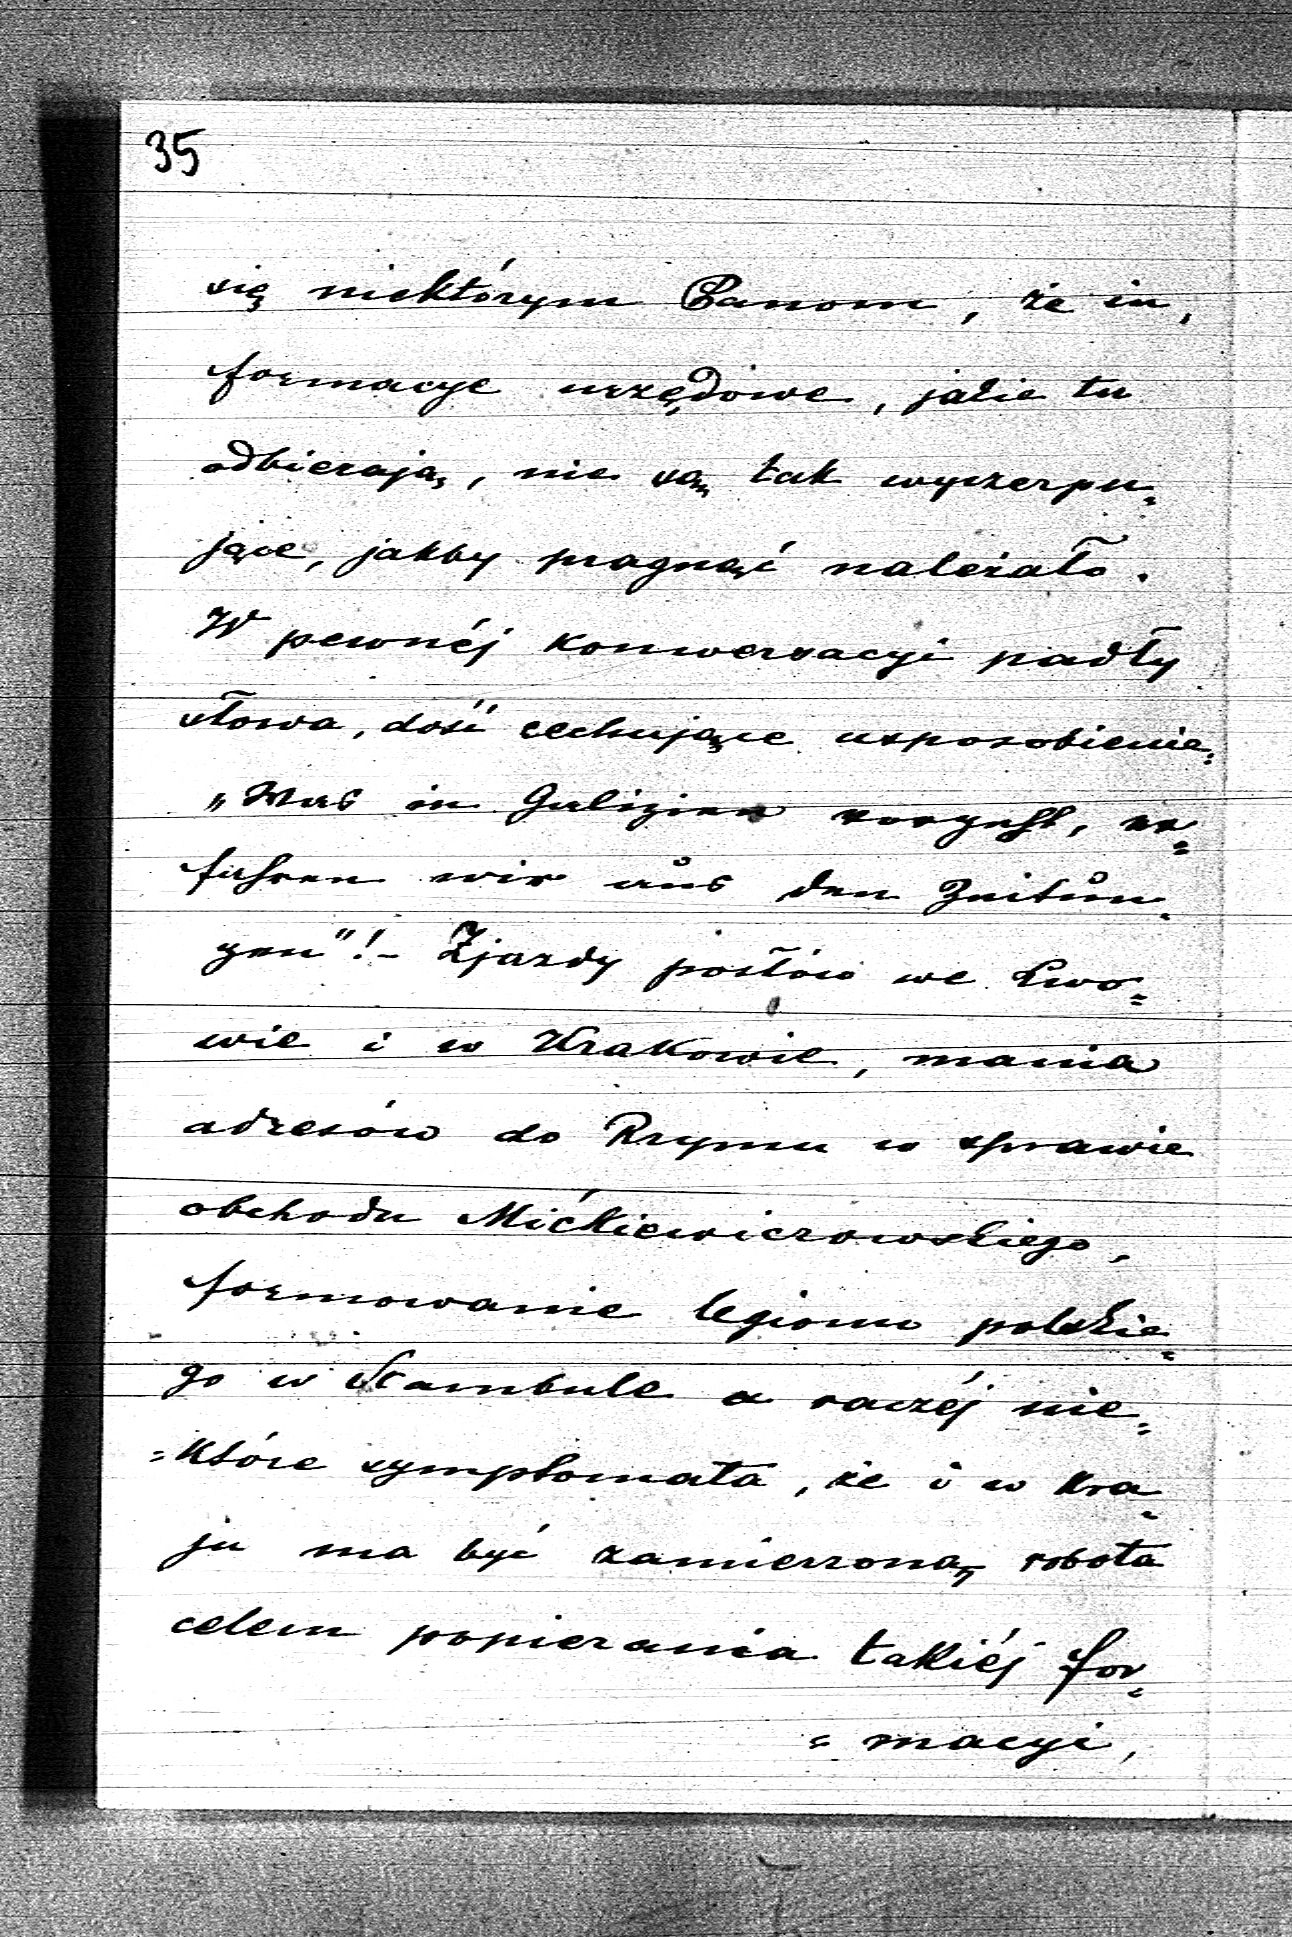 35
się niektórym Panom, że in,
formacye urzędowe, jakie tu
odbierają, nie są tak wyczerpu=
jące, jakby pragnąć należało.
W pewnéj konwersacyi padły
słowa, dość cechujące usposobienie:
„Was in Galizien vorgeht, er=
fahren wir aus den Zeitun=
gen"! - Zjazdy posłów we Lwo=
wie i w Krakowie, mania
adresów do Rzymu w sprawie
obchodu Mićkiewiczowskiego,
formowanie legionu polskie=
go w Stambule a raczéj nie=
=które symptomata, że i w kra=
ju ma być zamierzoną robota
celem popierania takiéj for=
= macyi,